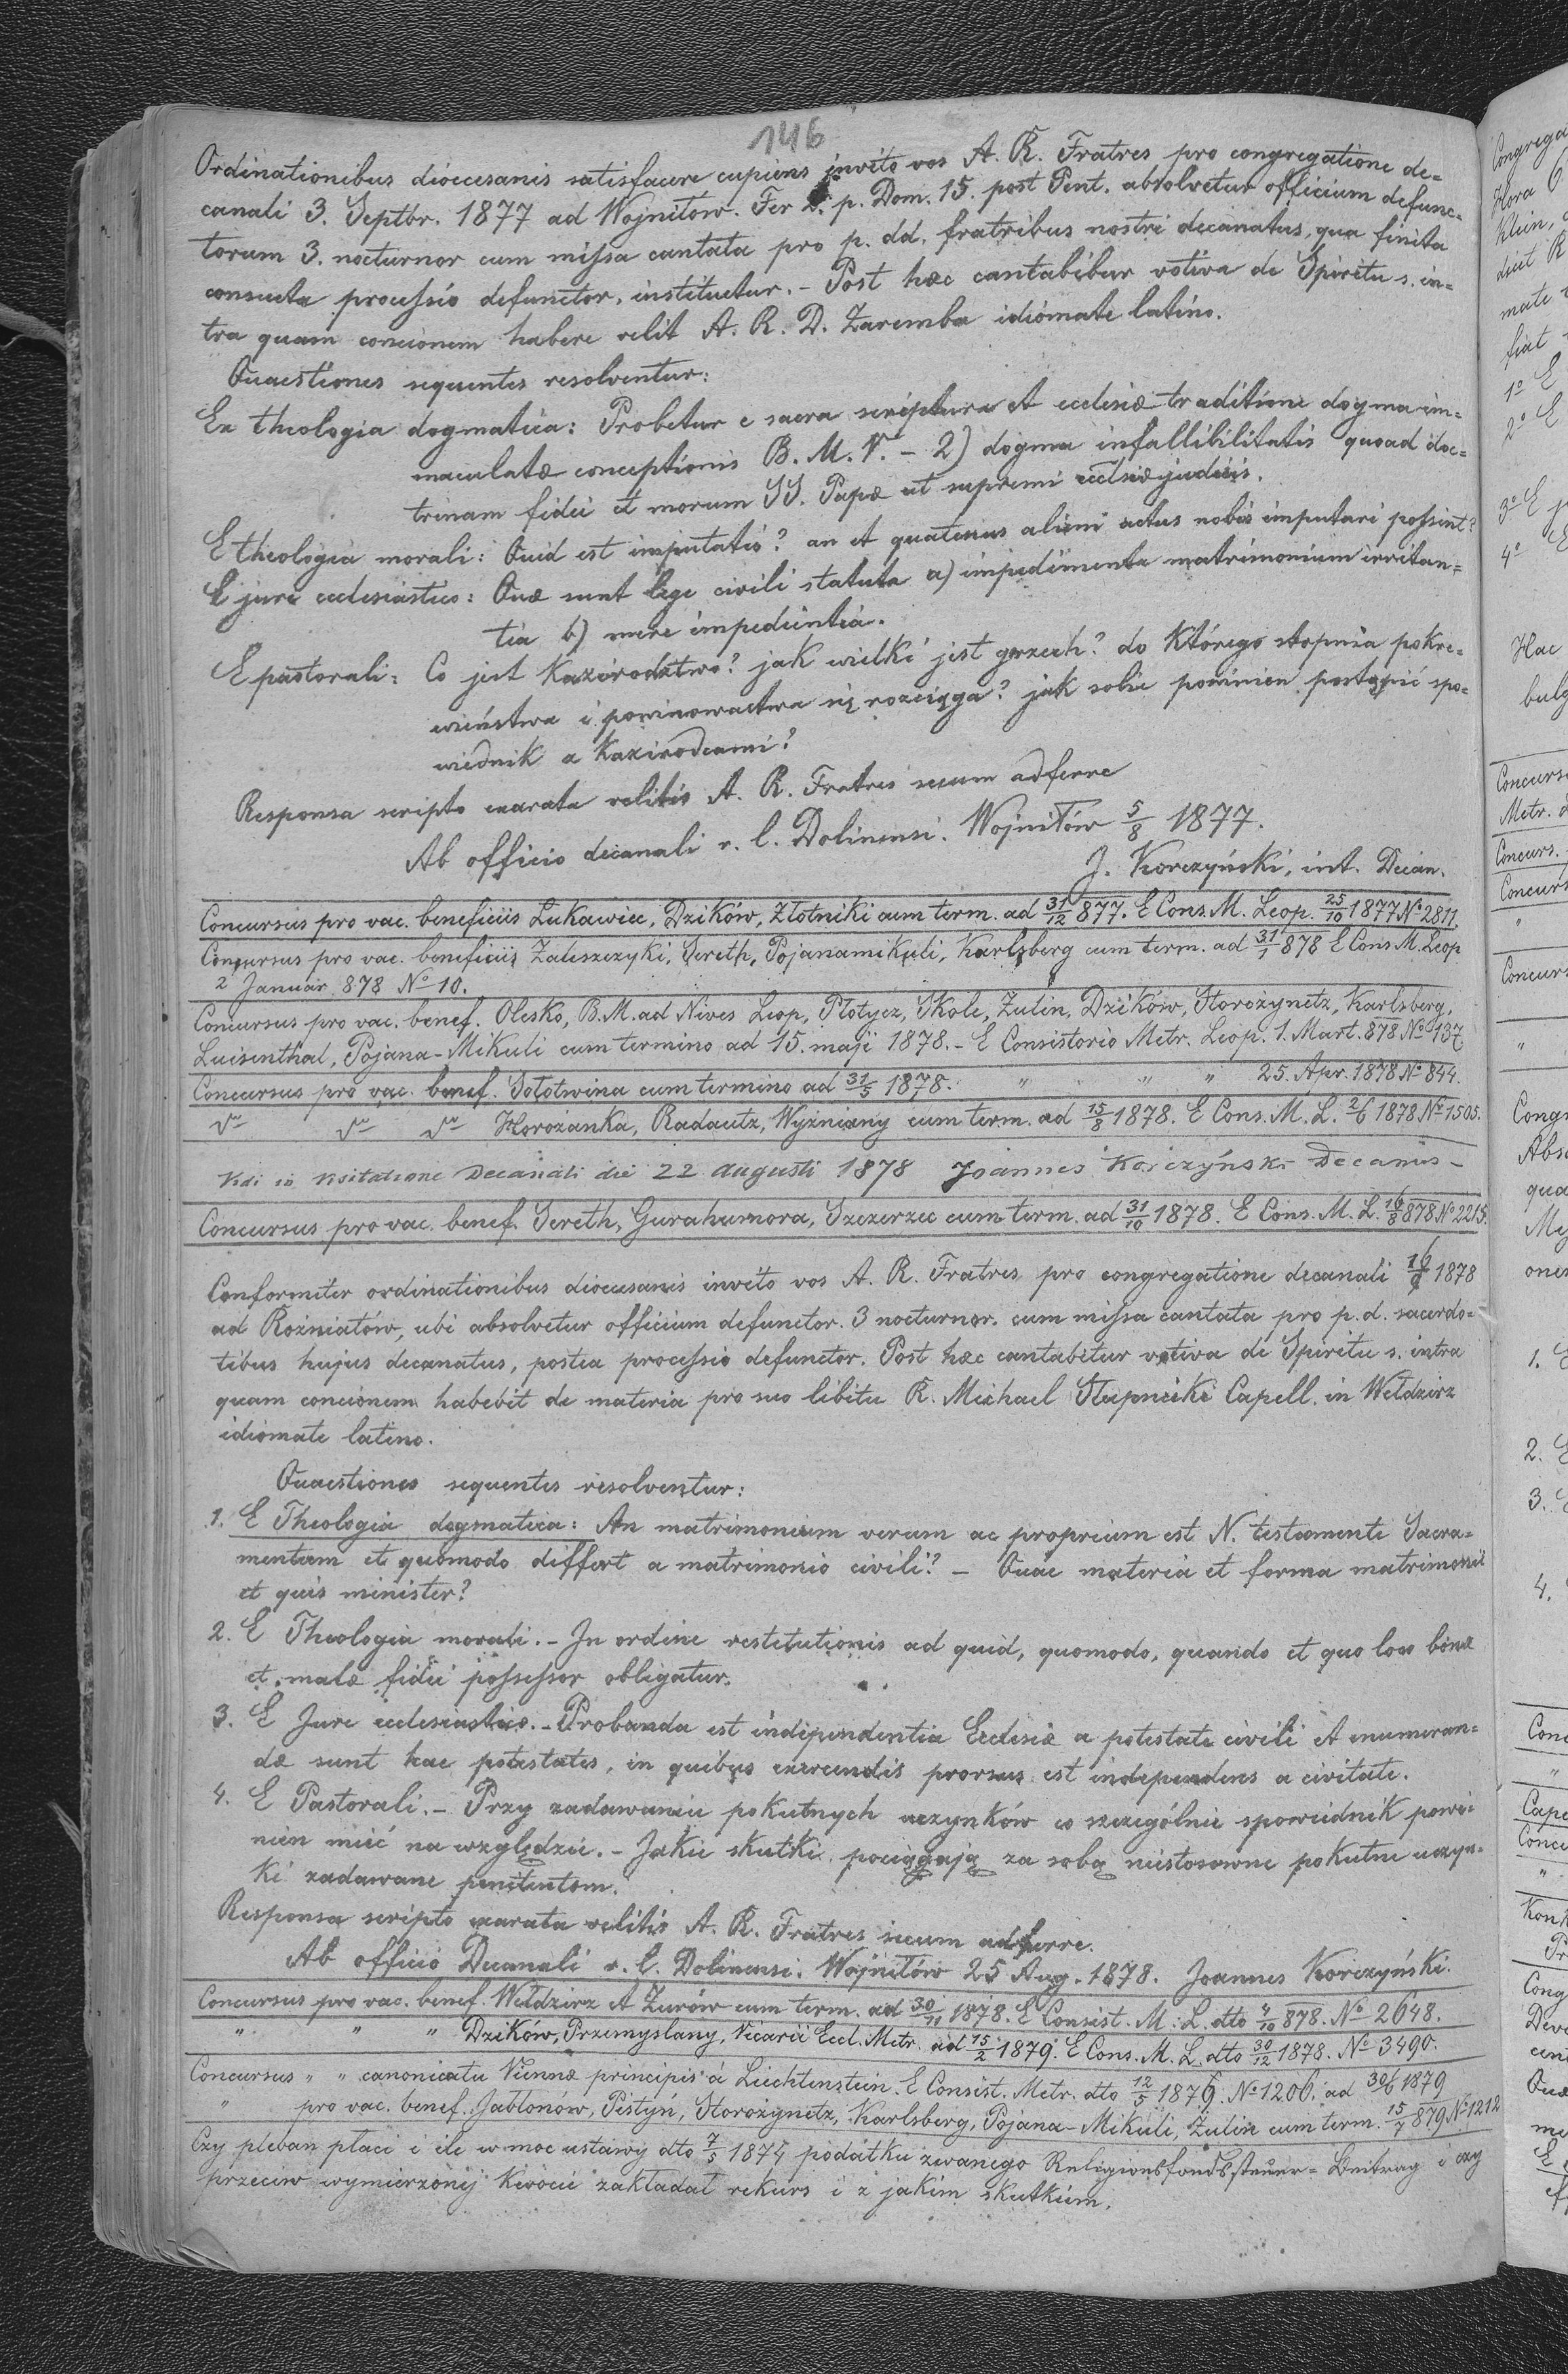 146
Ordinationibus dioecesanis satisfacere cupiens invito vos A. R. Fratres pro congregatione de=
canali 3. Septbr. 1877 ad Wojnitow. Fer 2. p. Dom. 15. post Pent. absolvetur officium defunc=
torum 3. nocturnor cum missa cantata pro p. dd. fratribus nostri decanatus, qua finita
consueta processio defunctor. instituetur. – Post hæc cantabitur votiva de Spiritu s. in=
tra quam concionem habere velit A. R. D. Zaremba idiomate latino.
Quaestiones sequentes resolventur:
Ex theologia dogmatica: Probetur e sacra scriptura et ecclesiæ traditione dogma im=
maculatæ conceptionis B. M. V. – 2) dogma infallibilitatis quoad doc=
trinam fidei et morum SS. Papæ ut supremi ecclsiæ judicis.
E theologia morali: Quid est imputatio? an et quatenus alieni actus nobis imputari possint?
E jure ecclesiastico: Quæ sunt lege civili statuta a) impedimenta matrimonium irritan=
tia b) mere impedientia.
E pastorali: Co jest Kazirodztwo? jak wielki jest grzech? do którego stopnia pokre=
wieństwa i powinowactwa się rozciąga? jak sobie powinien postąpić spo=
wiednik z Kazirodcami?
Responsa scripto exarata velitis A. R. Fratres secum adferre
Ab officio decanali r. l. Dolinensi. Wojniłów 5/8 1877.
J. Korczyński, int. Decan.
Concursus pro vac. beneficiis Lukawiec, Dzików, Złotniki cum term. ad 31/12 877. E Cons. M. Leop. 25/10 1877 No 2811.
Concursus pro vac. beneficiis Zaleszczyki, Sereth, Pojanamikuli, Karlsberg cum term. ad 31/1 878 E Cons M. Leop
2 Januar 878 No 10.
Concursus pro vac. benef. Olesko, B.M. ad Nives Leop, Płotycz, Skole, Zulin, Dzików, Storożynetz, Karlsberg,
Luisenthal, Pojana-Mikuli cum termino ad 15. maji 1878. – E Consistorio Metr. Leop. 1. Mart. 878 No 137
Concursus pro vac. benef. Sołotwina cum termino ad 31/5 1878. " " " 25. Apr. 1878 No 844.
Horożanka, Radautz, Wyżniany cum term. ad 15/8 1878. E Cons. M. L. 2/6 1878 No 1505.
Vidi in visitatione Decanali die 22 augusti 1878 Joannes Korczyński Decanus –
Concursus pro vac. benef. Sereth, Gurahumora, Szczerzec cum term. ad 31/10 1878. E Cons. M. L. 16/8 878 No 2215.
Conformiter ordinationibus dioecesanis invito vos A. R. Fratres pro congregatione decanali 16/9 1878
ad Rożniatów, ubi absolvetur officium defunctor. 3 nocturnor. cum missa cantata pro p. d. sacerdo=
tibus hujus decanatus, postea processio defunctor. Post hæc cantabitur votiva de Spiritu s. intra
quam concionem habebit de materia pro suo libitu R. Michael Słapnicki Capell. in Wełdzirz
idiomate latino.
Quaestiones sequentes resolventur:
1. E Theologia dogmatica: An matrimonium verum ac proprium est N. testamenti Sacra=
mentum et quomodo differt a matrimonio civili? – Quae materia et forma matrimonii
et quis minister?
2. E Theologia morali. – In ordine restitutionis ad quid, quomodo, quando et quo loco bonæ
et malæ fidei possessor obligatur.
3. E Jure ecclesiastico. – Probanda est independentia Ecclesiæ a potestate civili et enumeran=
dæ sunt hae potestates, in quibus exercendis prorsus est independens a civitate.
4. E Pastorali. – Przy zadawaniu pokutnych uczynków co szczególnie spowiednik powi=
nien mieć na względzie. – Jakie skutki pociągają za sobą niestosowne pokutne uczyn=
ki zadawane penitentom.
Responsa scripto exarata velitis A. R. Fratres secum adferre.
Ab officio Decanali r. l. Dolinensi. Wojniłów 25 Aug. 1878. Joannes Korczyński.
Concursus pro vac. benef. Wełdzirz et Żurów cum term. ad 30/11 1878. E Consist. M. L. dto 4/10 878. No 2648.
" " " Dzików, Przemyslany, Vicarii Eccl. Metr. ad 15/2 1879. E Cons. M. L. dto 30/12 1878. No 3490.
Concursus " " canonicatu Viennæ principis á Liechtenstein. E Consist. Metr. dto 12/5 1879. No 1206. ad 30/6 1879
" pro vac. benef. Jabłonów, Pistyń, Storożynetz, Karlsberg, Pojana-Mikuli, Zulin cum term. 15/7 879 No 1212
Czy pleban płaci i ile w moc ustawy dto 7/5 1874 podatku zwanego Religionsfondssteuer=Beitrag i czy
przeciw wymierzonej kwocie zakładał rekurs i z jakim skutkiem.